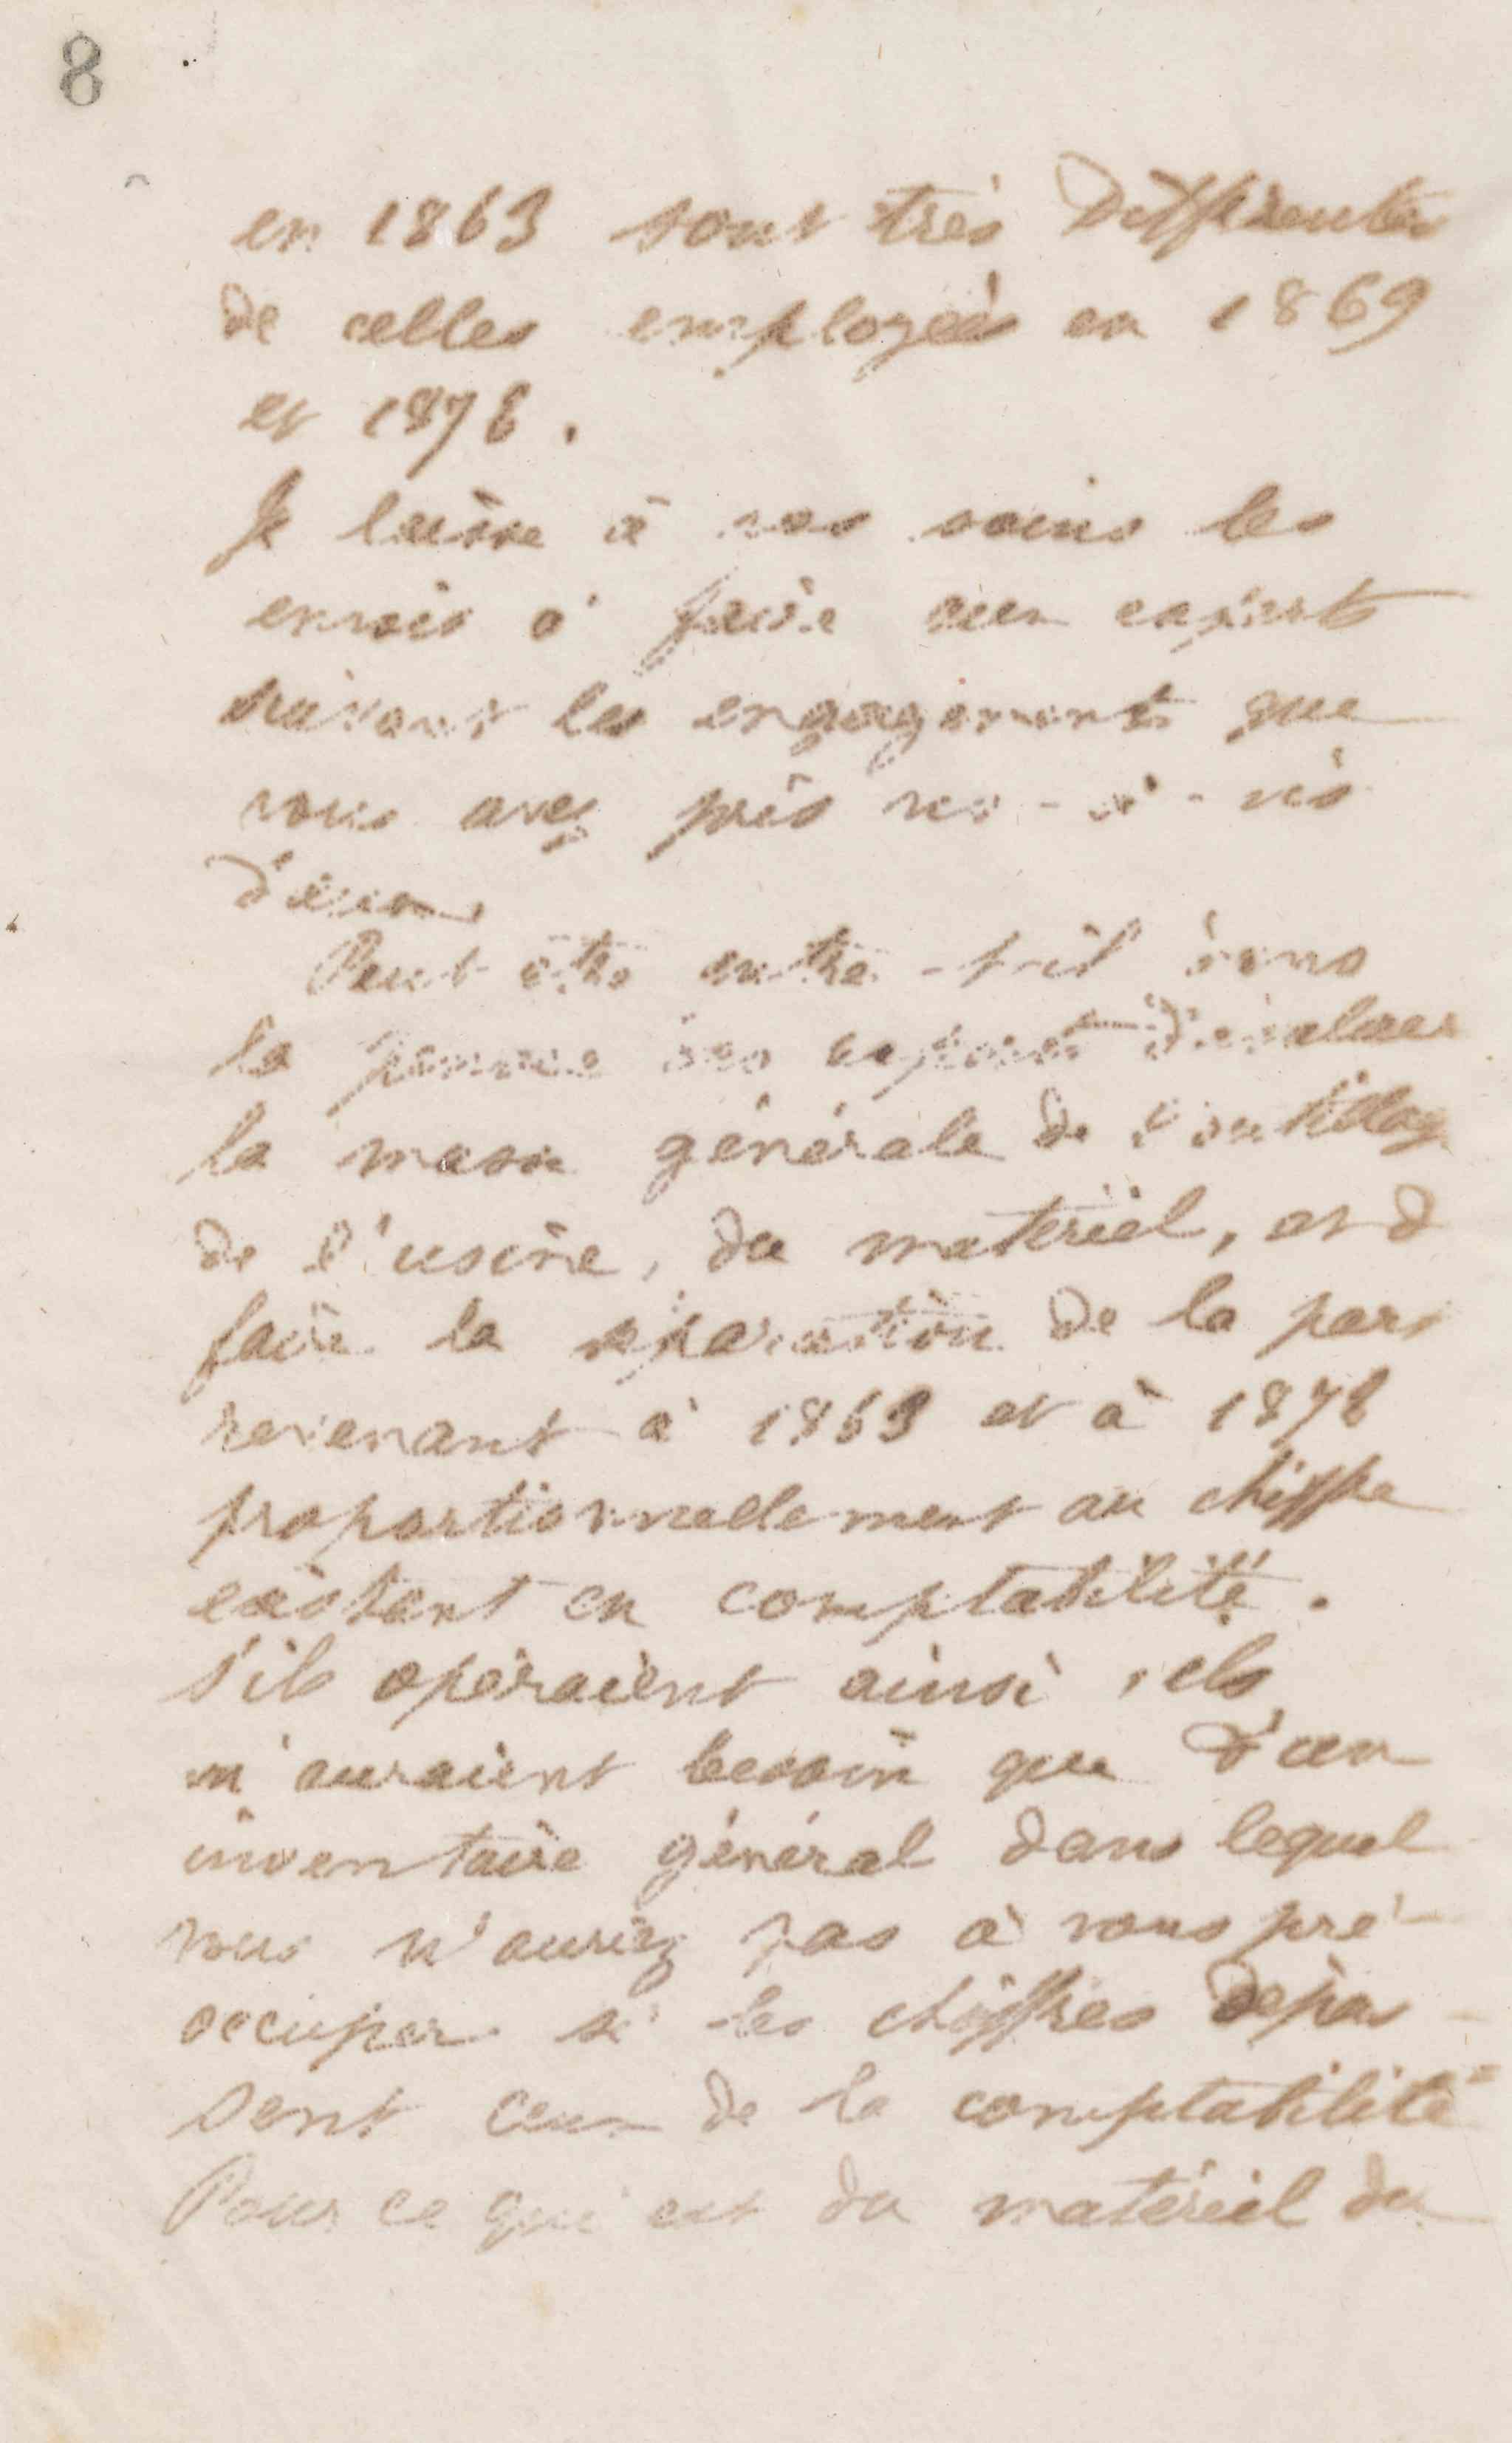 8
en 1863 sont très différentes
de celles employées en 1869
et 1878.
Je laisse à vos soins les
envois à faire aux experts
suivant les engagements que
vous avez pris vis-à-vis
d'eux
Peut être entre-t-il dans
la pensée des experts d'évaluer
la masse générale de l'outillag
de l'usine, du matériel, et d
faire la séparation de la part
revenant à 1863 et à 1878
proportionnellement au chiffre
existant en comptabilité.
S'ils opéraient ainsi, ils
n'auraient besoin que d'un
inventaire général dans lequel
vous n'auriez pas à vous pré-
occuper si les chiffres dépas-
sent ceux de la comptabilité
Pour ce qui est du matériel du